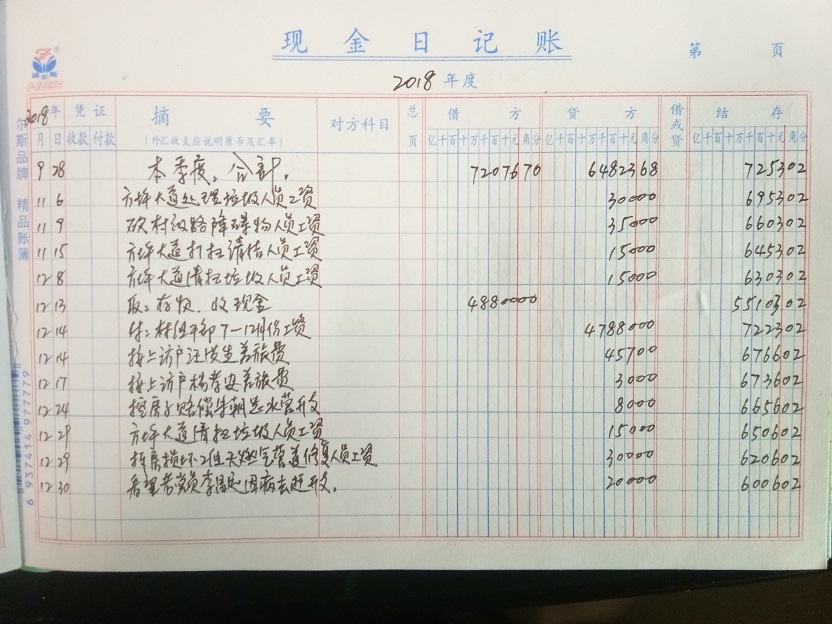 现金日记账
第 页
2018 年度
尔斯品牌 精品账簿
6 937414 977779
2018年 凭证 摘要 对方科目 总页 借方 贷方 借或贷 结存
月 日 收款 付款 (外汇收支应说明原币及汇率) 亿千百十万千百十元角分 亿千百十万千百十元角分 亿千百十万千百十元角分
9 28 本季度合计. 7207670 6482368 725302
11 6 方坪大道处理垃圾人员工资 30000 695302
11 9 砍村级路障碍物人员工资 35000 660302
11 15 方坪大道打扫清洁人员工资 15000 645302
12 8 方坪大道清扫垃圾人员工资 15000 630302
12 13 取:存收.收现金 4880000 5510302
12 14 付:村组干部7—12月份工资 4788000 722302
12 14 接上访户汪 生差旅费 45700 676602
12 17 接上访户杨孝安差旅费 3000 673602
12 24 挖房子赔偿 朝 水管开支 8000 665602
12 29 方坪大道清扫垃圾人员工资 15000 650602
12 29 拆房损坏2组天燃气管道修复人员工资 30000 620602
12 30 看望 李 因病去 开支. 20000 600602